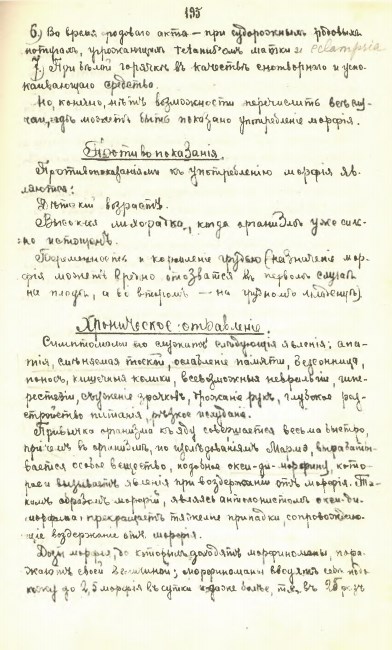 195
6) Во время родоваго акта — при судорожных родовых
потугах, угрожающих tetanus'ом матки и eclampsia
7) При белой горячке в качестве снотворного и успо-
каивающаго средства.
Но, конечно, нет возможности перечислить все слу-
чаи, где может быть показано употребление морфiя.
Противопоказанiя.
Противопоказанiем к употребленiю морфiя яв-
ляются:
Детскiй возраст.
Высокая лихорадка, когда организм уже силь-
но истощен.
Беременность и кормленiе грудью (назначенiе мор-
фiя может вредно отозваться в первом случае
на плоде, а во втором — на грудном младенце).
Хроническое отравленiе.
Симптомами его служат следующiя явленiя: апа-
тiя, сменяемая тоской, ослабленiе памяти, безсонница,
понос, кишечныя колики, всевозможныя невралгiи, гипе-
рестезiи, съуженiе зрачков, дрожанiе рук, глубокое раз-
стройство питанiя, резкое исхуданiе.
Привычка организма к яду совершается весьма быстро,
причем в организме, по изследованiям Марме, выработы-
вается особое вещество, подобное окси-ди-морфину, кото-
рое и вызывает явленiя при воздержанiи от морфiя. Та-
ким образом морфiй, являясь антагонистом окси-ди-
морфина, прекращает тяжелые припадки, сопровождаю-
щiе воздержанiе от морфiя.
Дозы морфiя, до которых доходят морфиноманы, пора-
жают своей величиной; морфиноманы вводят себе под
кожу до 2,5 морфiя в сутки и даже более, т.е. в 25 раз